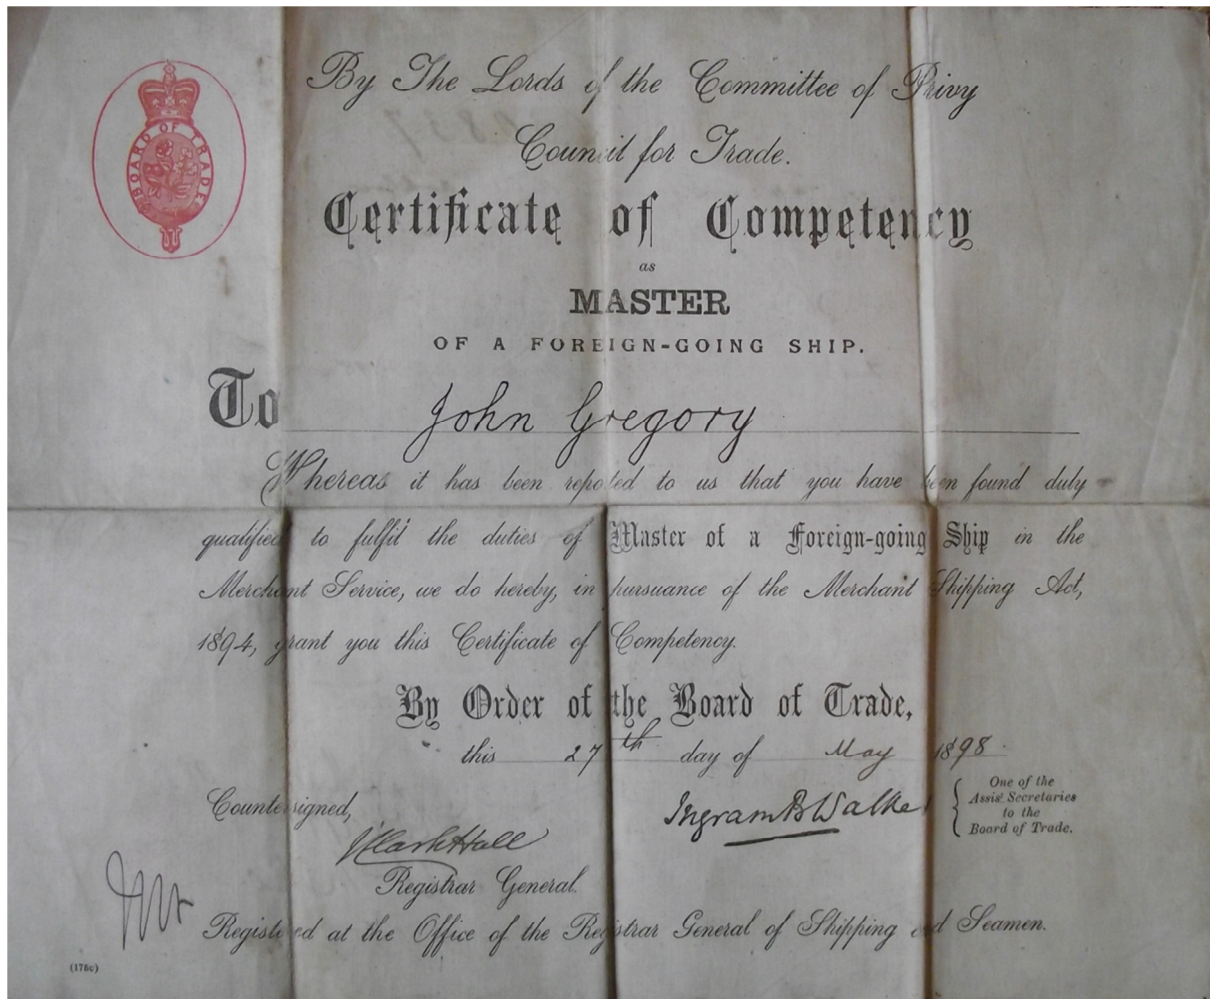 By The Lords of the Committee of Privy
Council for Trade.
BOARD OF TRADE
Certificate of Competency
as
MASTER
OF A FOREIGN-GOING SHIP.
To John Gregory
Whereas it has been reported to us that you have been found duly
qualified to fulfil the duties of Master of a Foreign-going Ship in the
Merchant Service, we do hereby, in pursuance of the Merchant Shipping Act,
1894, grant you this Certificate of Competency.
By Order of the Board of Trade,
this 27th day of May 1898.
One of the
Assist. Secretaries
to the
Board of Trade.
Countersigned,
Ingram B Walker
J Clark Hall
Registrar General.
Registered at the Office of the Registrar General of Shipping and Seamen.
(176c)